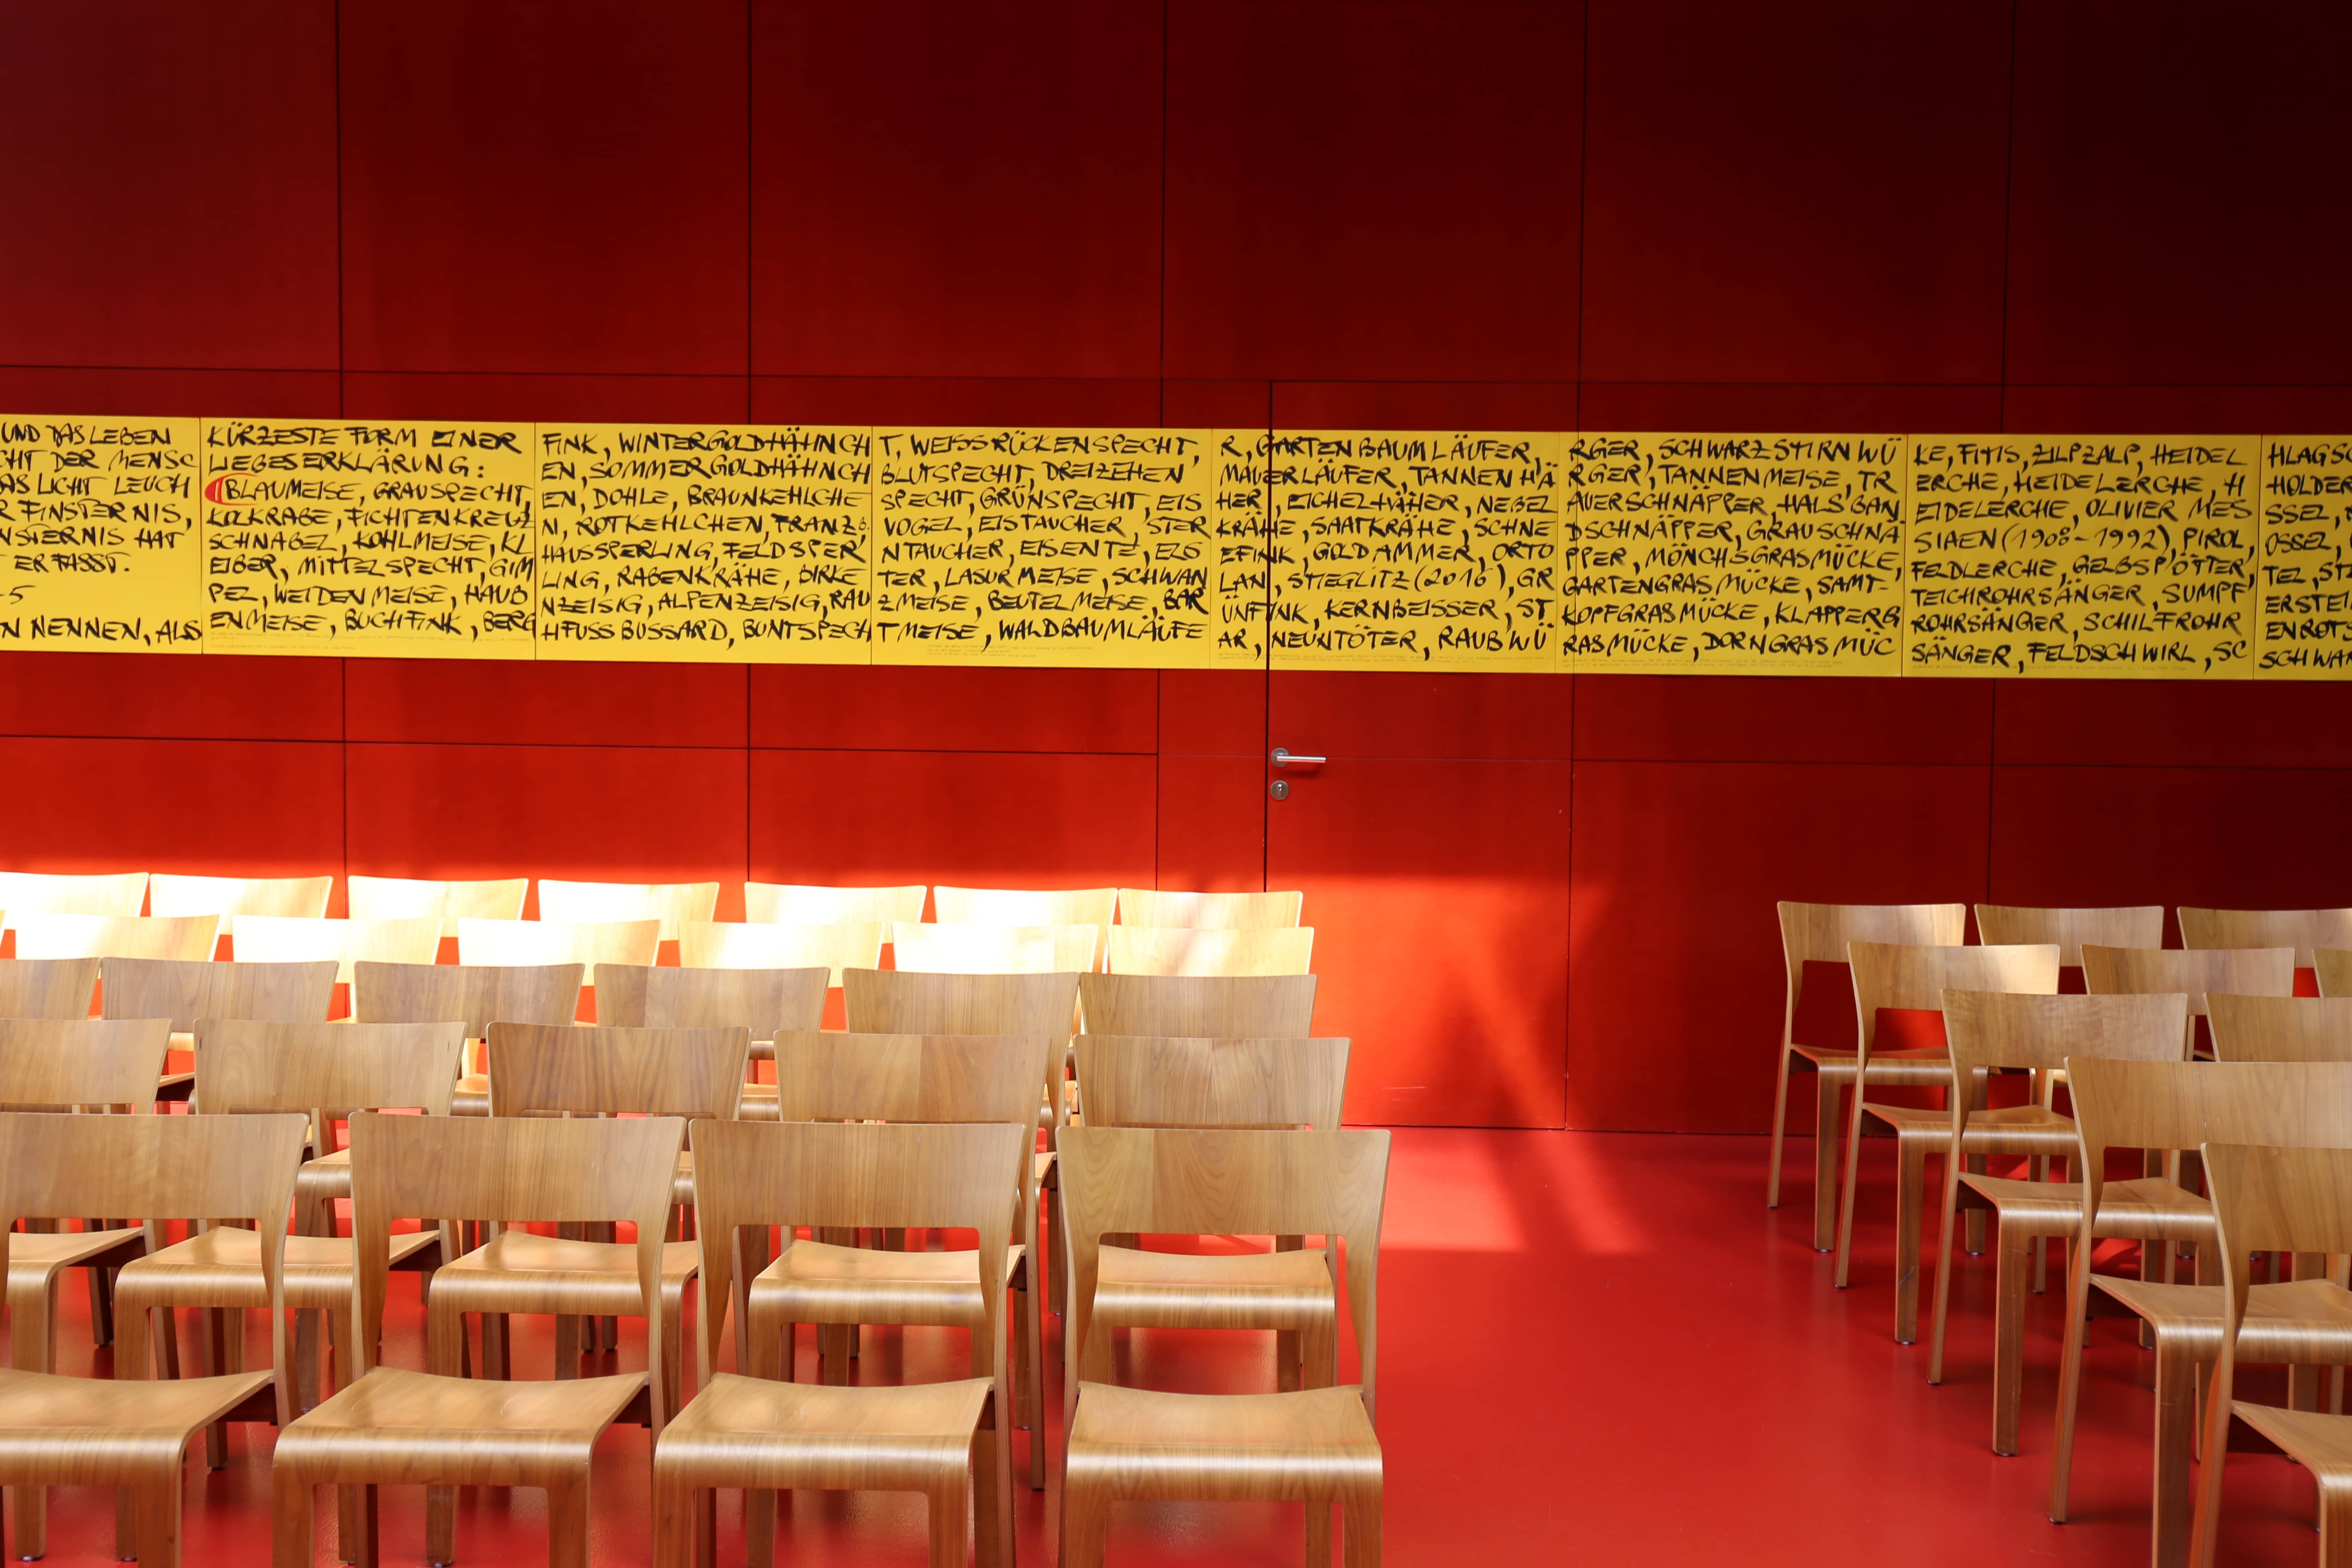 UND DAS LEBEN
CHT DER MENSC
AS LICHT LEUCH
R FINSTERNIS,
NSTERNIS HAT
T ERFASST.
-5
N NENNEN, ALS
KÜRZESTE FORM EINER
LIEBESERKLÄRUNG:
BLAUMEISE, GRAUSPECHT,
KOLKRABE, FICHTENKREUZ
SCHNABEL, KOHLMEISE, KL
EIBER, MITTELSPECHT, GIM
PEL, WEIDENMEISE, HAUB
ENMEISE, BUCHFINK, BERG
FINK, WINTERGOLDHÄHNCH
EN, SOMMERGOLDHÄHNCH
EN, DOHLE, BRAUNKEHLCHE
N, ROTKEHLCHEN, FRANZ,
HAUSSPERLING, FELDSPER
LING, RABENKRÄHE, BIRKE
NZEISIG, ALPENZEISIG, RAU
HFUSSBUSSARD, BUNTSPECH
T, WEISSRÜCKENSPECHT,
BLUTSPECHT, DREIZEHEN
SPECHT, GRÜNSPECHT, EIS
VOGEL, EISTAUCHER, STER
NTAUCHER, EISENTE, ELS
TER, LASURMEISE, SCHWAN
ZMEISE, BEUTELMEISE, BAR
TMEISE, WALDBAUMLÄUFE
R, GARTENBAUMLÄUFER,
MAUERLÄUFER, TANNENHÄ
HER, EICHELHÄHER, NEBEL
KRÄHE, SAATKRÄHE, SCHNE
EFINK, GOLDAMMER, ORTO
LAN, STIEGLITZ (2016), GR
ÜNFINK, KERNBEISSER, ST
AR, NEUNTÖTER, RAUBWÜ
RGER, SCHWARZSTIRNWÜ
RGER, TANNENMEISE, TR
AUERSCHNÄPPER, HALSBAN
DSCHNÄPPER, GRAUSCHNÄ
PPER, MÖNCHSGRASMÜCKE,
GARTENGRASMÜCKE, SAMT-
KOPFGRASMÜCKE, KLAPPERG
RASMÜCKE, DORNGRASMÜC
KE, FITIS, ZILPZALP, HEIDEL
ERCHE, HEIDELERCHE, H
EIDELERCHE, OLIVIER MES
SIAEN (1908-1992), PIROL,
FELDLERCHE, GELBSPÖTTER,
TEICHROHRSÄNGER, SUMPF
ROHRSÄNGER, SCHILFROHR
SÄNGER, FELDSCHWIRL, SC
HLAGSC
HOLDER
SSEL,
OSSEL,
TEL, ST
ERSTEI
ENROTS
SCHWAR